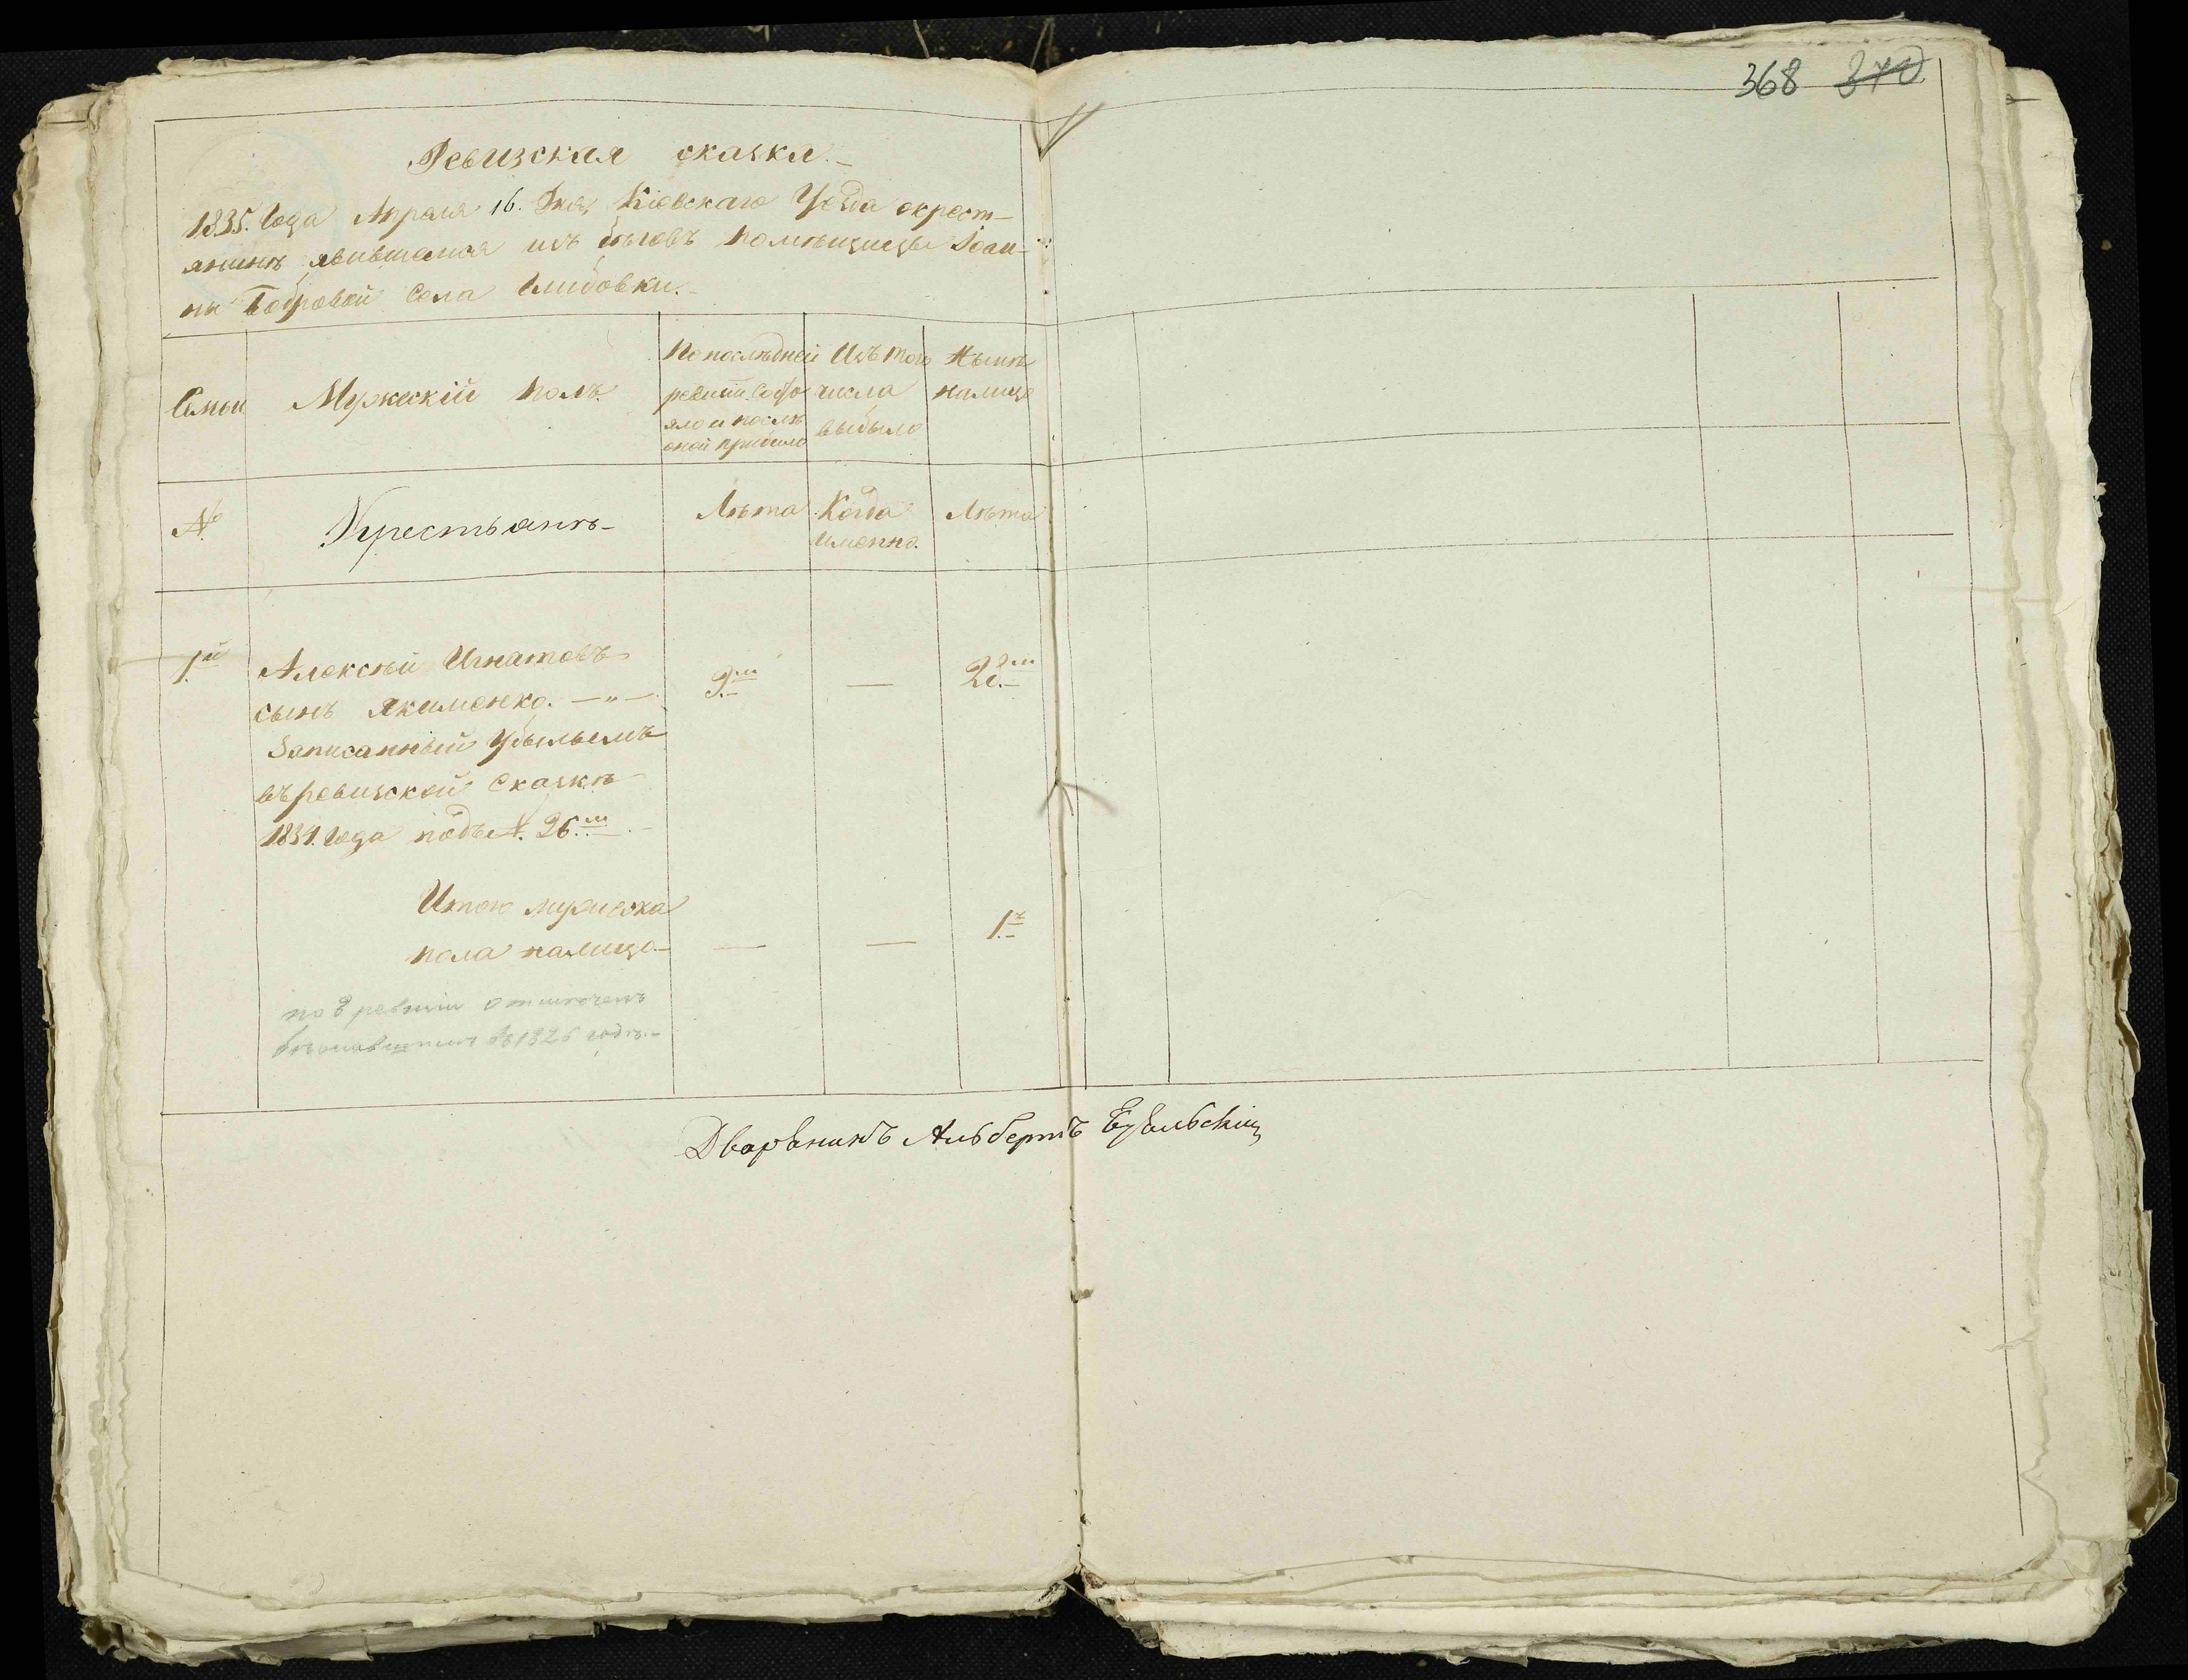 368 370
Ревизская сказка.
1835. Года Апреля 16. Дня, Кіевскаго Уезда окрест-
янинѣ явившемся изъ беговъ помѣщицы Іоан-
ны Бобровой Села Глибовки.
Семьи
Мужескій полъ.
По последней
ревизіи состо
яло и после
оной прибыло
Изъ того
числа
выбыло
Нынѣ
налицо
№
Крестьянъ
Лѣта
Когда
именно.
Лѣта
1.й Алексѣй Игнатовъ
сынъ Якименко. —„—
9.ти — 28.ми
Записанный убылымъ
въ ревизской Сказкѣ
1834. Года подъ №. 26.ми
Итого мужеска
пола налицо — — 1.ъ
по 8 ревизіи отмѣченъ
бѣжавшимъ въ 1826 годѣ.
Дворѣнинъ Альбертъ